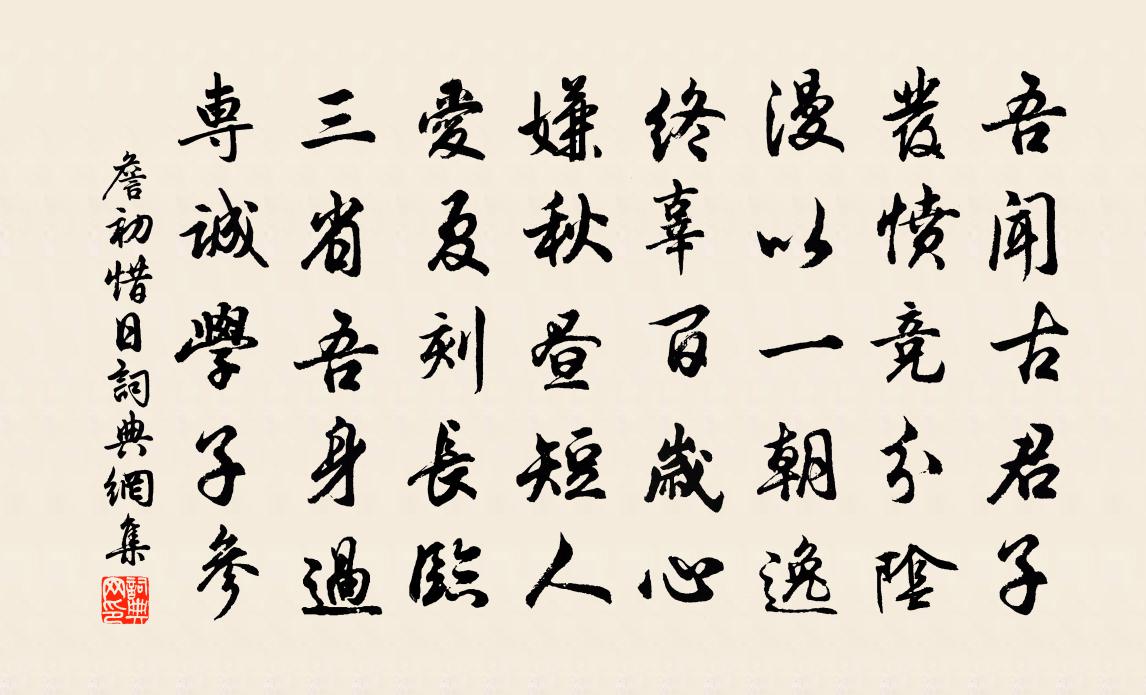 吾聞古君子
發憤競分陰
漫以一朝逸
終辜百歲心
嫌秋晝短人
愛夏刻長臨
三省吾身過
專誠學子參
詹初惜日詞典網集
詞典網印